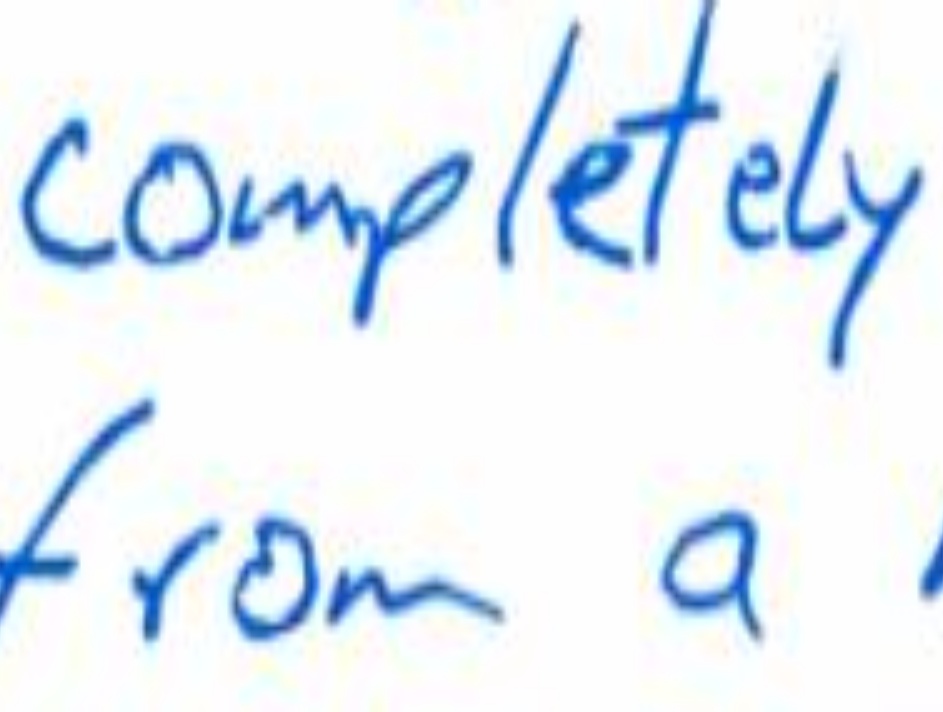 completely
from a